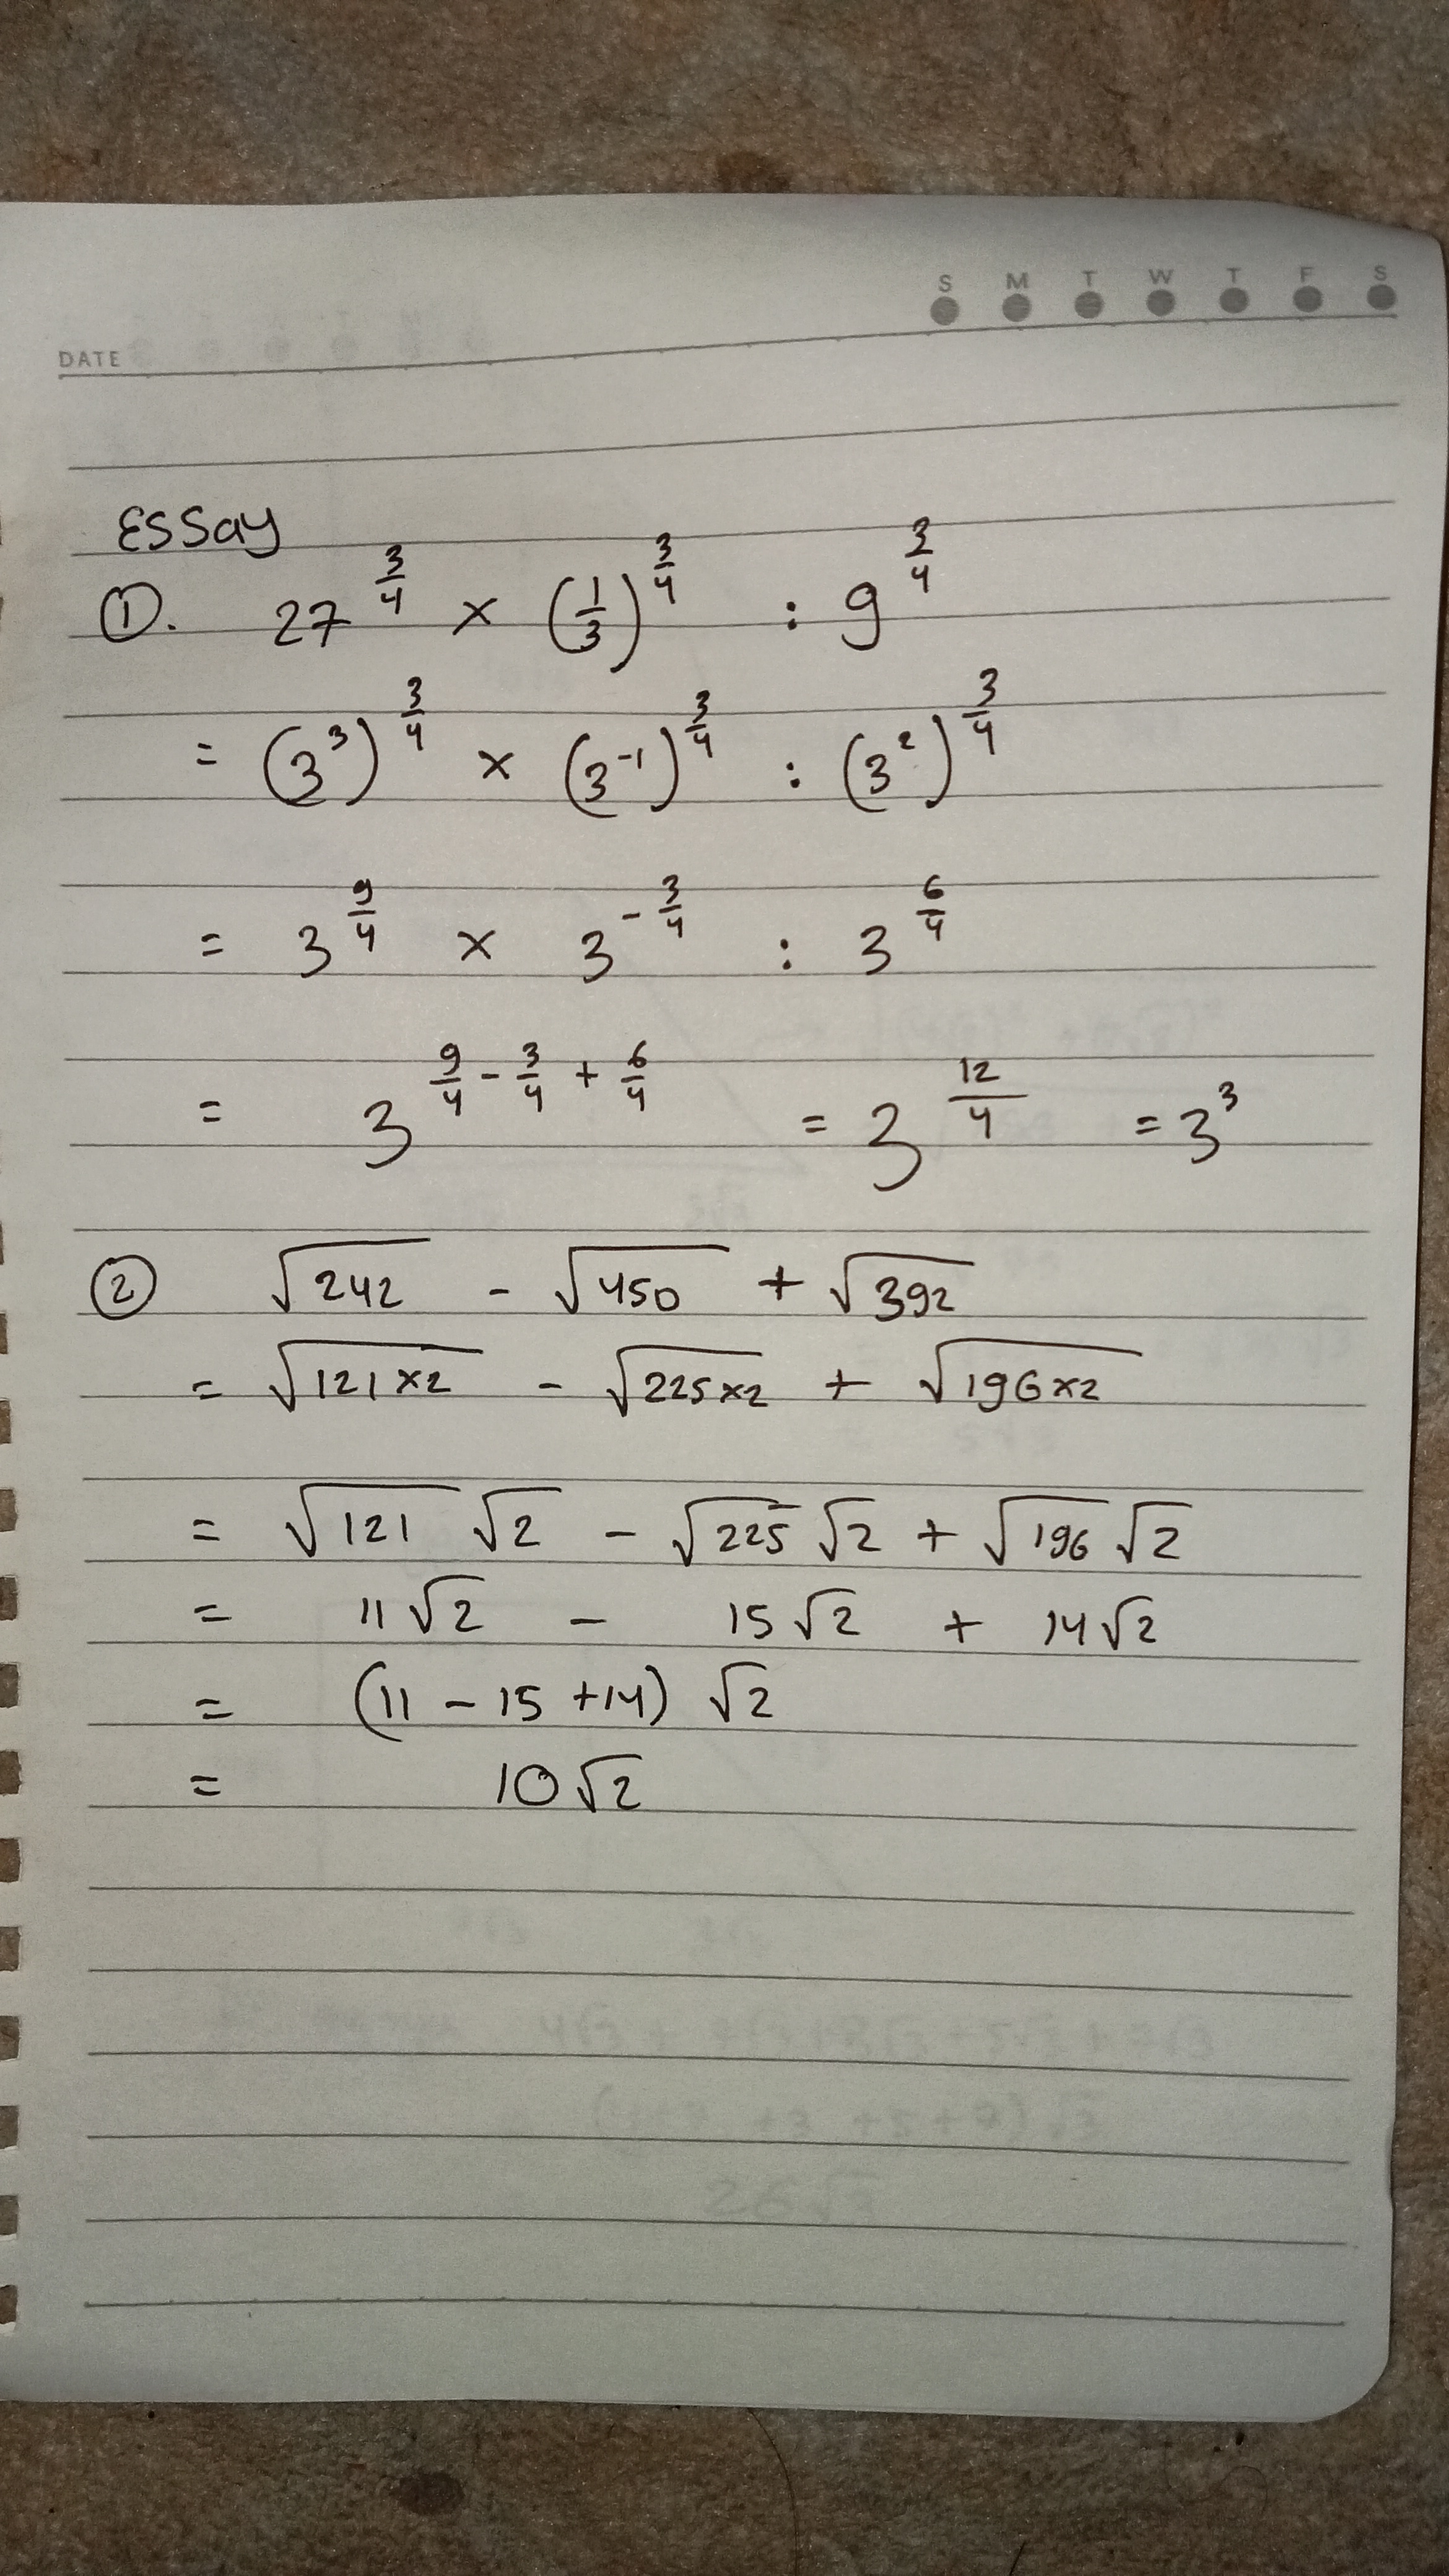 S M T W T F S
DATE
Essay
①. 27^(3/4) × (1/3)^(3/4) : 9^(3/4)
= (3^3)^(3/4) × (3^-1)^(3/4) : (3^2)^(3/4)
= 3^(9/4) × 3^(-3/4) : 3^(6/4)
= 3^(9/4 - 3/4 + 6/4) = 3^(12/4) = 3^3
② √242 - √450 + √392
= √121×2 - √225×2 + √196×2
= √121 √2 - √225 √2 + √196 √2
= 11√2 - 15√2 + 14√2
= (11 - 15 + 14) √2
= 10√2